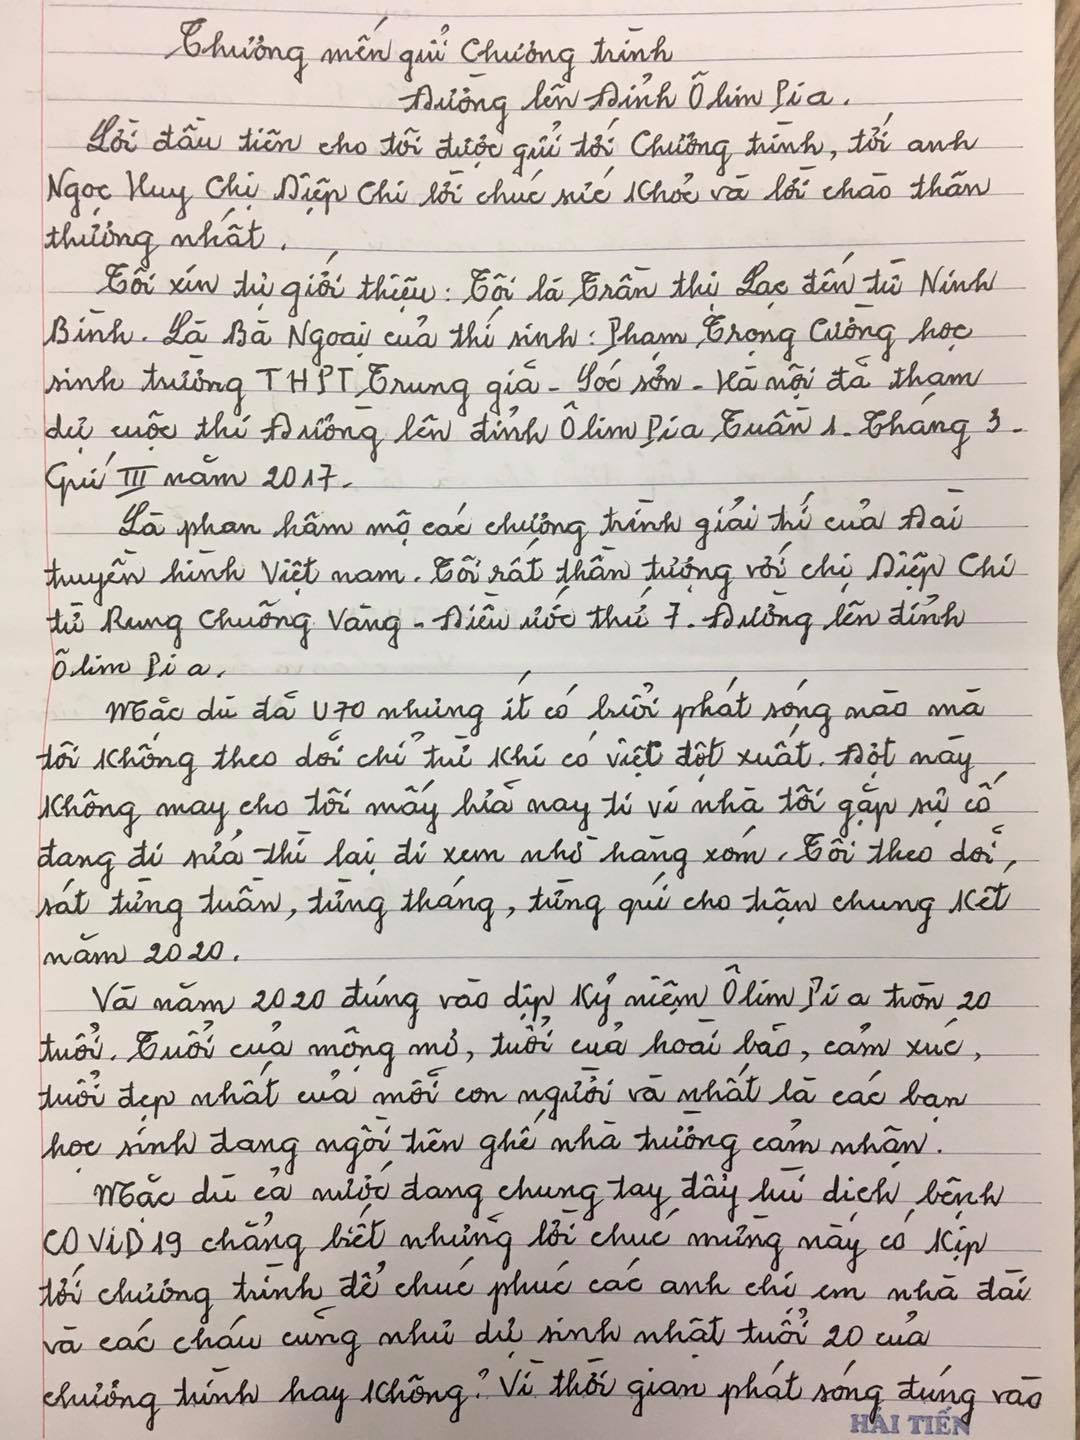 Thương mến gửi Chương trình
Đường lên Đỉnh Ôlim Pi a.
Lời đầu tiên cho tôi được gửi tới Chương trình, tới anh
Ngọc Huy Chị Diệp Chi lời chúc sức khỏe và lời chào thân
thương nhất.
Tôi xin tự giới thiệu: Tôi là Trần thị Lạc đến từ Ninh
Bình. Là Bà Ngoại của thí sinh: Phạm Trọng Cường học
sinh trường THPT Trung giã - Sóc sơn - Hà nội đã tham
dự cuộc thi Đường lên đỉnh Ôlim Pia Tuần 1. Tháng 3.
Quí III năm 2017.
Là phan hâm mộ các chương trình giải trí của Đài
truyền hình Việt nam. Tôi rất thần tượng với chị Diệp Chi
từ Rung Chuông Vàng - Điều ước thứ 7. Đường lên đỉnh
Ôlim Pi a.
Mặc dù đã U70 nhưng ít có buổi phát sóng nào mà
tôi không theo dõi chỉ trừ khi có việc đột xuất. Đợt này
không may cho tôi mấy hôm nay ti vi nhà tôi gặp sự cố
đang đi sửa thì lại đi xem nhờ hàng xóm. Tôi theo dõi,
sát từng tuần, từng tháng, từng quí cho trận chung kết
năm 2020.
Và năm 2020 đúng vào dịp kỷ niệm Ôlim Pi a tròn 20
tuổi. Tuổi của mộng mơ, tuổi của hoài bão, cảm xúc,
tuổi đẹp nhất của mỗi con người và nhất là các bạn
học sinh đang ngồi trên ghế nhà trường cảm nhận.
Mặc dù cả nước đang chung tay đẩy lùi dịch bệnh
COViD19 chẳng biết những lời chúc mừng này có kịp
tới chương trình để chúc phúc các anh chị em nhà đài
và các cháu cũng như dự sinh nhật tuổi 20 của
chương trình hay không? Vì thời gian phát sóng đúng vào
HẢI TIẾN